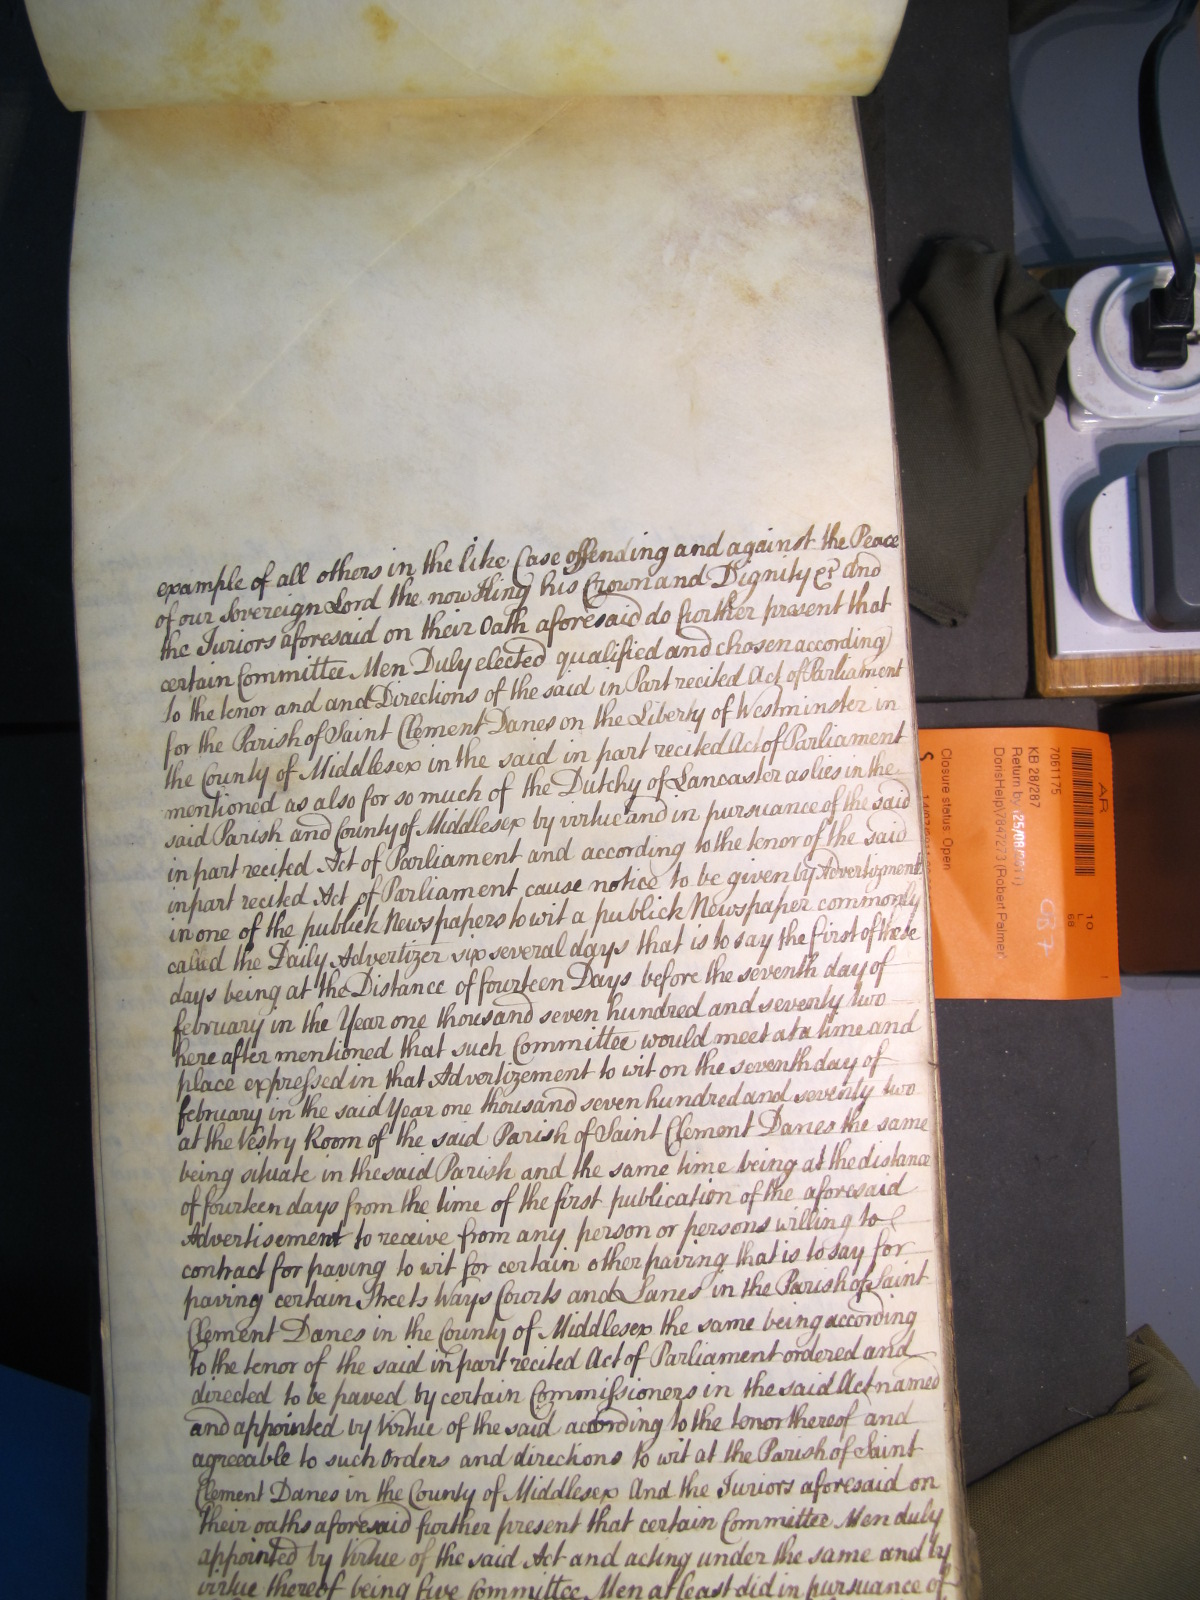 example of all others in the like Case offending and against the Peace
of our Sovereign Lord the now King his Crown and Dignity &c. And
the Juriors aforesaid on their Oath aforesaid do further present that
certain Committee Men Duly elected qualified and chosen according
to the tenor and and Directions of the said in Part recited Act of Parliament
for the Parish of Saint Clement Danes on the Liberty of Westminster in
the County of Middlesex in the said in part recited Act of Parliament
mentioned as also for so much of the Dutchy of Lancaster as lies in the
said Parish and County of Middlesex by virtue and in pursuance of the said
in part recited Act of Parliament and according to the tenor of the said
in part recited Act of Parliament cause notice to be given by Advertizment
in one of the publick Newspapers to wit a publick Newspaper commonly
called the Daily Advertizer six several days that is to say the first of these
days being at the Distance of fourteen Days before the seventh day of
february in the Year one thousand seven hundred and seventy two
here after mentioned that such Committee would meet at a time and
place expressed in that Advertizement to wit on the seventh day of
february in the said Year one thousand seven hundred and seventy two
at the Vestry Room of the said Parish of Saint Clement Danes the same
being situate in the said Parish and the same time being at the distance
of fourteen days from the time of the first publication of the aforesaid
Advertisement to receive from any person or persons willing to
contract for paving to wit for certain other paving that is to say for
paving certain Streets Ways Courts and Lanes in the Parish of Saint
Clement Danes in the County of Middlesex the same being according
to the tenor of the said in part recited Act of Parliament ordered and
directed to be paved by certain Commissioners in the said Act named
and appointed by Virtue of the said according to the tenor thereof and
agreeable to such Orders and directions to wit at the Parish of Saint
Clement Danes in the County of Middlesex And the Juriors aforesaid on
their oaths aforesaid further present that certain Committee Men duly
appointed by Virtue of the said Act and acting under the same and by
virtue thereof being five Committee Men at least did in pursuance of
AR
7061175
KB 28/287
Return by (25/08/2011)
DorisHelp\7847273 (Robert Palmer)
Closure status: Open
S
10
L
68